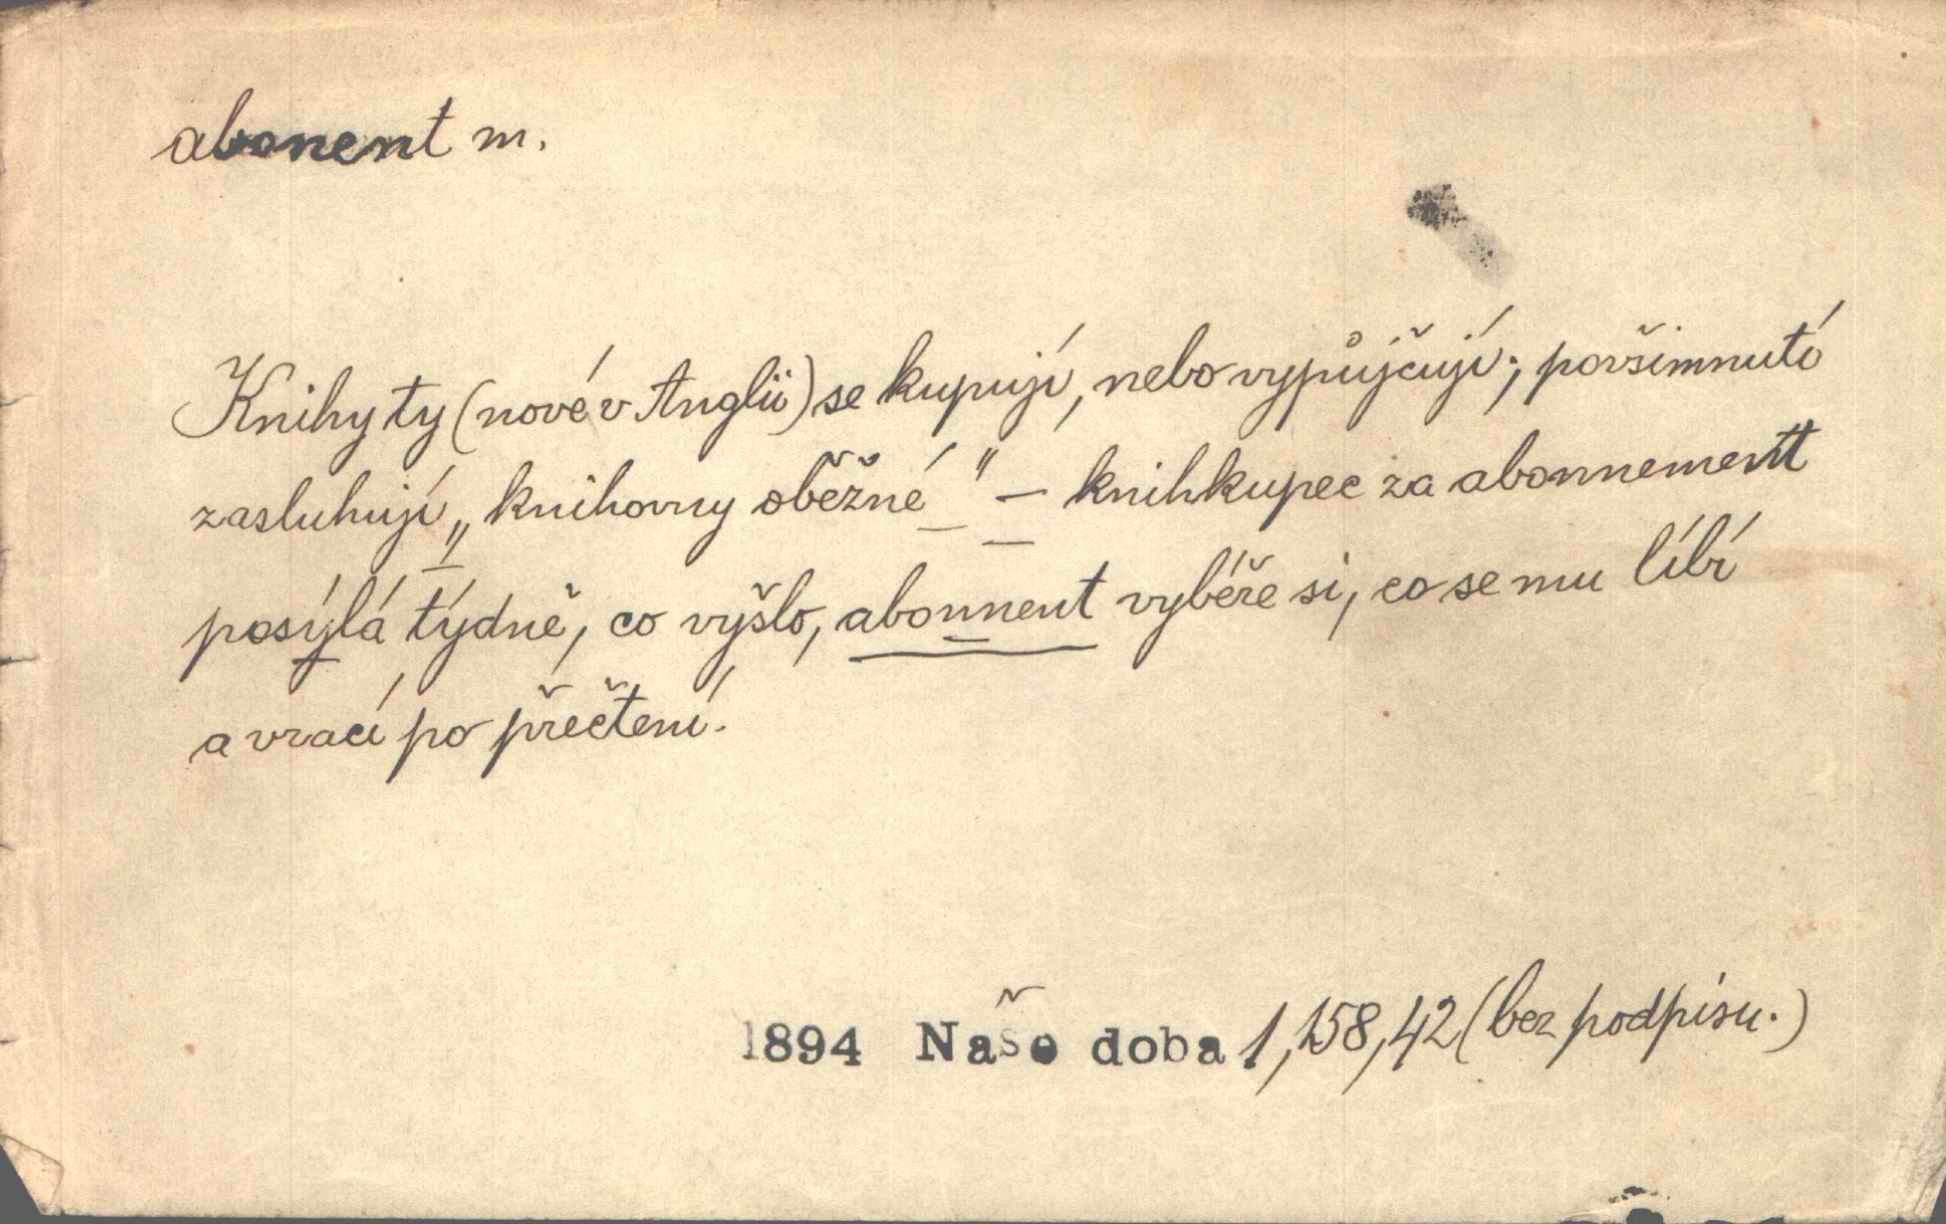 abonent m.
Knihy ty (nové v Anglii) se kupují, nebo vypůjčují; povšimnutí
zasluhují „knihovny oběžné" — knihkupec za abonnement
posýlá týdně, co vyšlo, abonnent vybéře si, co se mu líbí
a vrací po přečtení.
1894 Naše doba 1, 158, 42 (bez podpisu.)